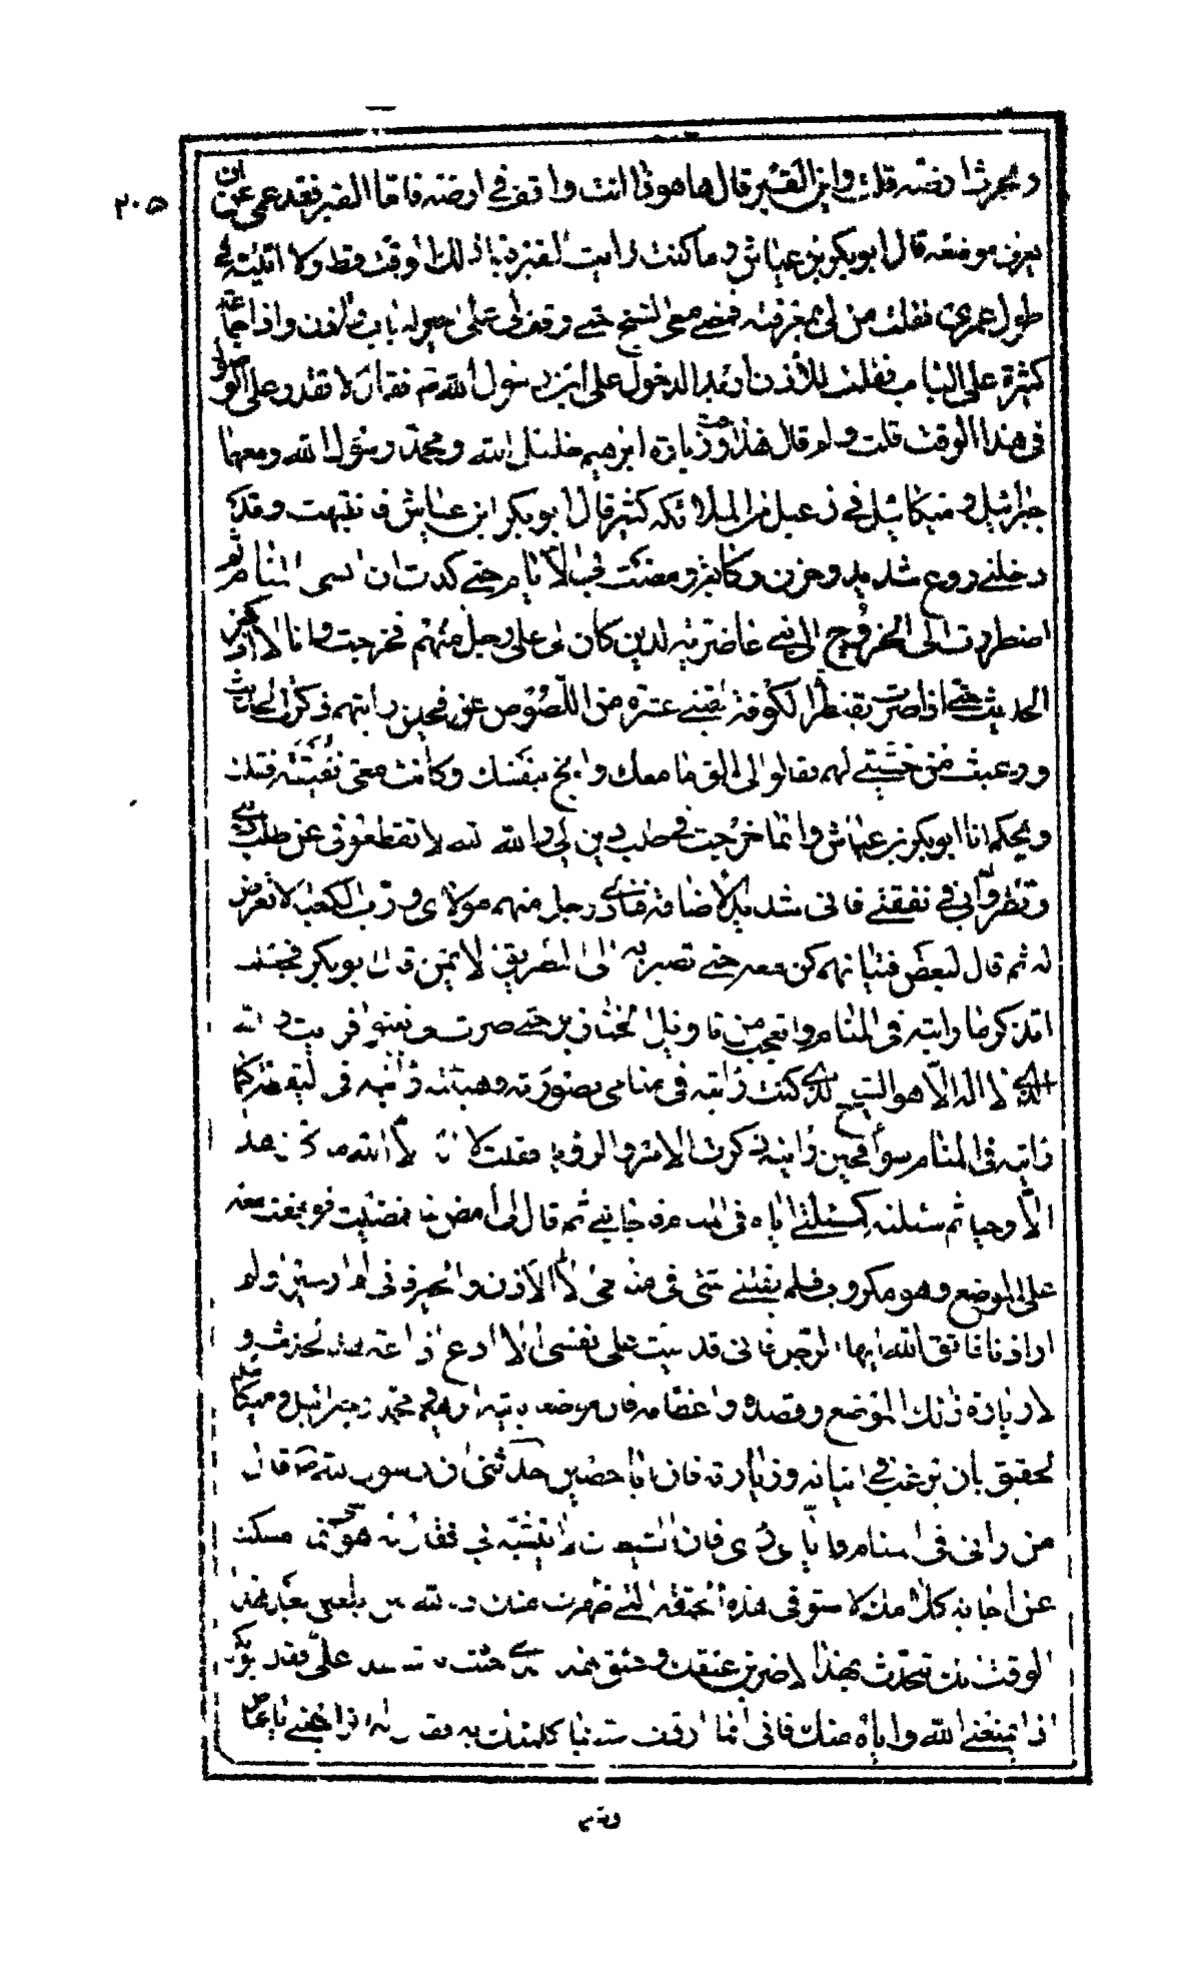 ويحرث ارضه قلت واين القبر قال ها هوذا انت واقف في ارضه فاما القبر فقد عمي عن ان
يعرف موضعه قال ابو بكر بن عياش وما كنت رايت القبر قبل ذلك الوقت قط ولا اتيته في
طول عمري فقلت من لي بمعرفته فمضى معي الشيخ حتى وقف لي على حير له باب واذن واذا جماعة
كثيرة على الباب فقلت للآذن اريد الدخول على ابن رسول الله ص فقال لا تقدر على الوصول
في هذا الوقت قلت ولم قال هذا وقت زيارة ابرهيم خليل الله ومحمد رسول الله ومعهما
جبرئيل وميكائيل في رعيل من الملائكة كثير قال ابو بكر ابن عياش فانتبهت وقد
دخلني روع شديد وحزن وكابة ومضت في الايام حتى كدت ان انسى المنام ثم
اضطررت الى الخروج الى بني غاضرية لدين كان لي على رجل منهم فخرجت وانا لا اذكر
الحديث حتى اذا صرت بقنطرة الكوفة لقيني عشرة من اللصوص فحين رايتهم ذكرت الحديث
ورعبت من خشيتي لهم فقالوا لي الق ما معك وانج بنفسك وكانت معي نفيقة فقلت
ويحكم انا ابو بكر بن عياش وانما خرجت في طلب دين لي والله الله لا تقطعوني عن طلب ديني
وتضروا بي في نفقتي فاني شديد الاضاقة فنادى رجل منهم مولاي ورب الكعبة لا تعرض
له ثم قال لبعض فتيانهم كن معه حتى تصير به الى الطريق الايمن قال ابو بكر فجعلت
اتذكر ما رايته في المنام واتعجب من تاويل الخنازير حتى صرت الى نينوى فرايت والله
الذي لا اله الا هو الشيخ الذي كنت رايته في منامي بصورته وهيئته رايته في اليقظة كما
رايته في المنام سواء فحين رايته ذكرت الامر والرؤيا فقلت لا اله الا الله ما كان هذا
الا وحيا ثم سئلته كمسئلتي اياه في المنام فاجابني ثم قال لي امض بنا فمضيت فوقفت معه
على الموضع وهو مكروب فلم يفتني شئ في منامي الا الآذن والحير فاني لم ار حيرا ولم
ار اذنا فاتق الله ايها الرجل فاني قد آليت على نفسي ان لا ادع اذاعة هذا الحديث و
لا زيارة ذلك الموضع وقصده واعظامه فان موضعا ياتيه ابرهيم ومحمد وجبرئيل وميكائيل
لحقيق بان يرغب في اتيانه وزيارته فان ابا حصين حدثني ان رسول الله ص قال
من راني في المنام فاياي راى فان الشيطان لا يتشبه بي فقال له موسى انما امسكت
عن اجابة كلامك لاستوفي هذه الحمقة التي ظهرت منك وبالله لئن بلغني بعد هذا
الوقت انك تتحدث بهذا لاضربن عنقك وعنق هذا الذي جئت به شاهدا علي فقال ابو بكر
اذا يمنعني الله واياه منك فاني انما اردت الله بما كلمتك به فقال له اتراجعني يا عاص
وتم
٢٠٥